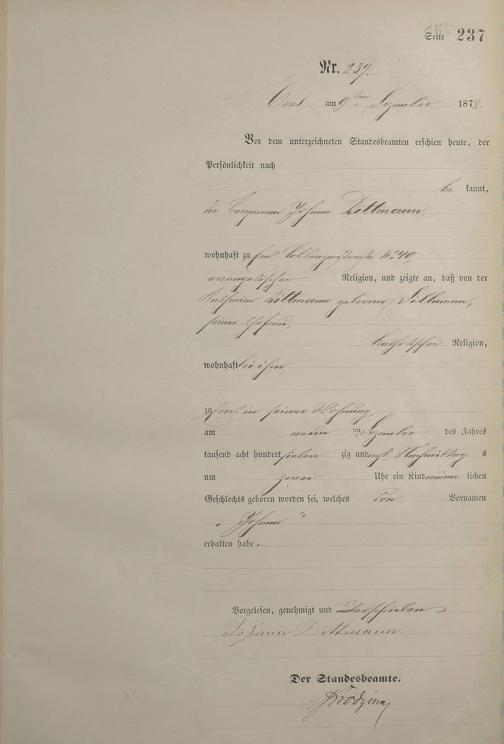 Seite 237
Nr. 237.
Ems am 9ten Dezember 1878.
Vor dem unterzeichneten Standesbeamten erschien heute, der
Persönlichkeit nach
be kannt,
der Bergmann Johann Dittmann,
wohnhaft zu Ems No 40,
evangelischer Religion, und zeigte an, daß von der
Katharina Dittmann geborene Dittmann,
seiner Ehefrau,
katholischer Religion,
wohnhaft bei ihm,
zu Ems in seiner Wohnung
am neun ten Dezember des Jahres
tausend acht hundert sieben zig und acht Nachmittag s
um zwei Uhr ein Kind männ lichen
Geschlechts geboren worden sei, welches den Vornamen
„Johann“
erhalten habe.
Vorgelesen, genehmigt und unterschrieben
Johann Dittmann
Der Standesbeamte.